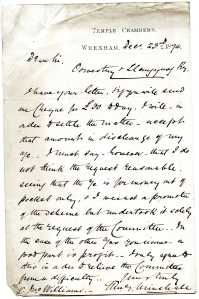 TEMPLE CHAMBERS,
WREXHAM, Dec 23rd 1870
Dear Sir,
Oswestry & Llangynog Ry
I have your letter. If you will send
me Cheque for £20 today. I will, in
order to settle the matter - accept
that amount in discharge of my
I must say however that I do
not think the request reasonable,
seeing that the is for money out of
pocket only, & I was not a promoter
of the scheme but undertook it solely
at the request of the Committee. In
the case of the other you name a
good part is profit - I only agree to
this in order to relieve the Committee
from a difficulty. Yours truly
Williams